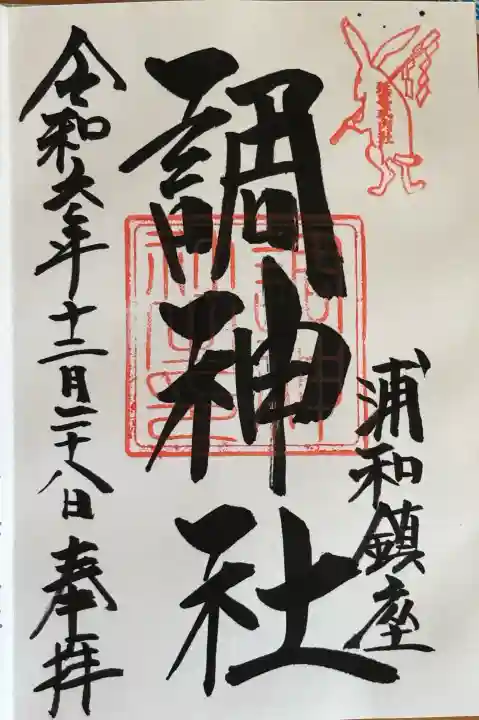 浦和鎮座
調神社
令和六年十二月二十八日奉拝